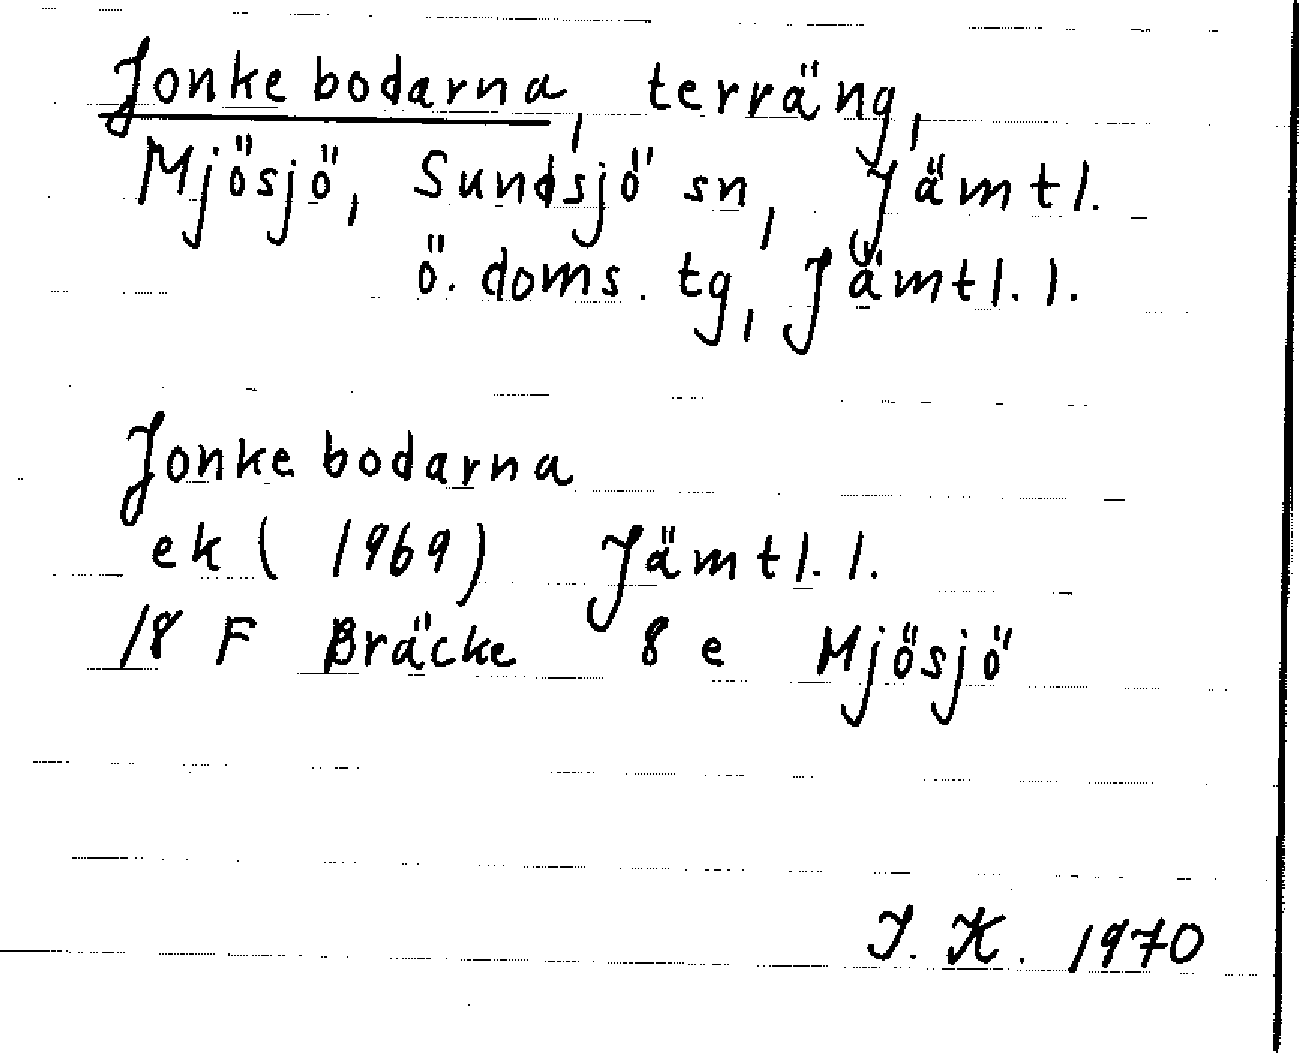 Jonkebodarna, terräng,
Mjösjö, Sundsjö sn, Jämtl.
ö. doms. tg, Jämtl. l.
Jonkebodarna
ek ( 1969) Jämtl. l.
18 F Bräcke 8 e Mjösjö
I. K. 1970